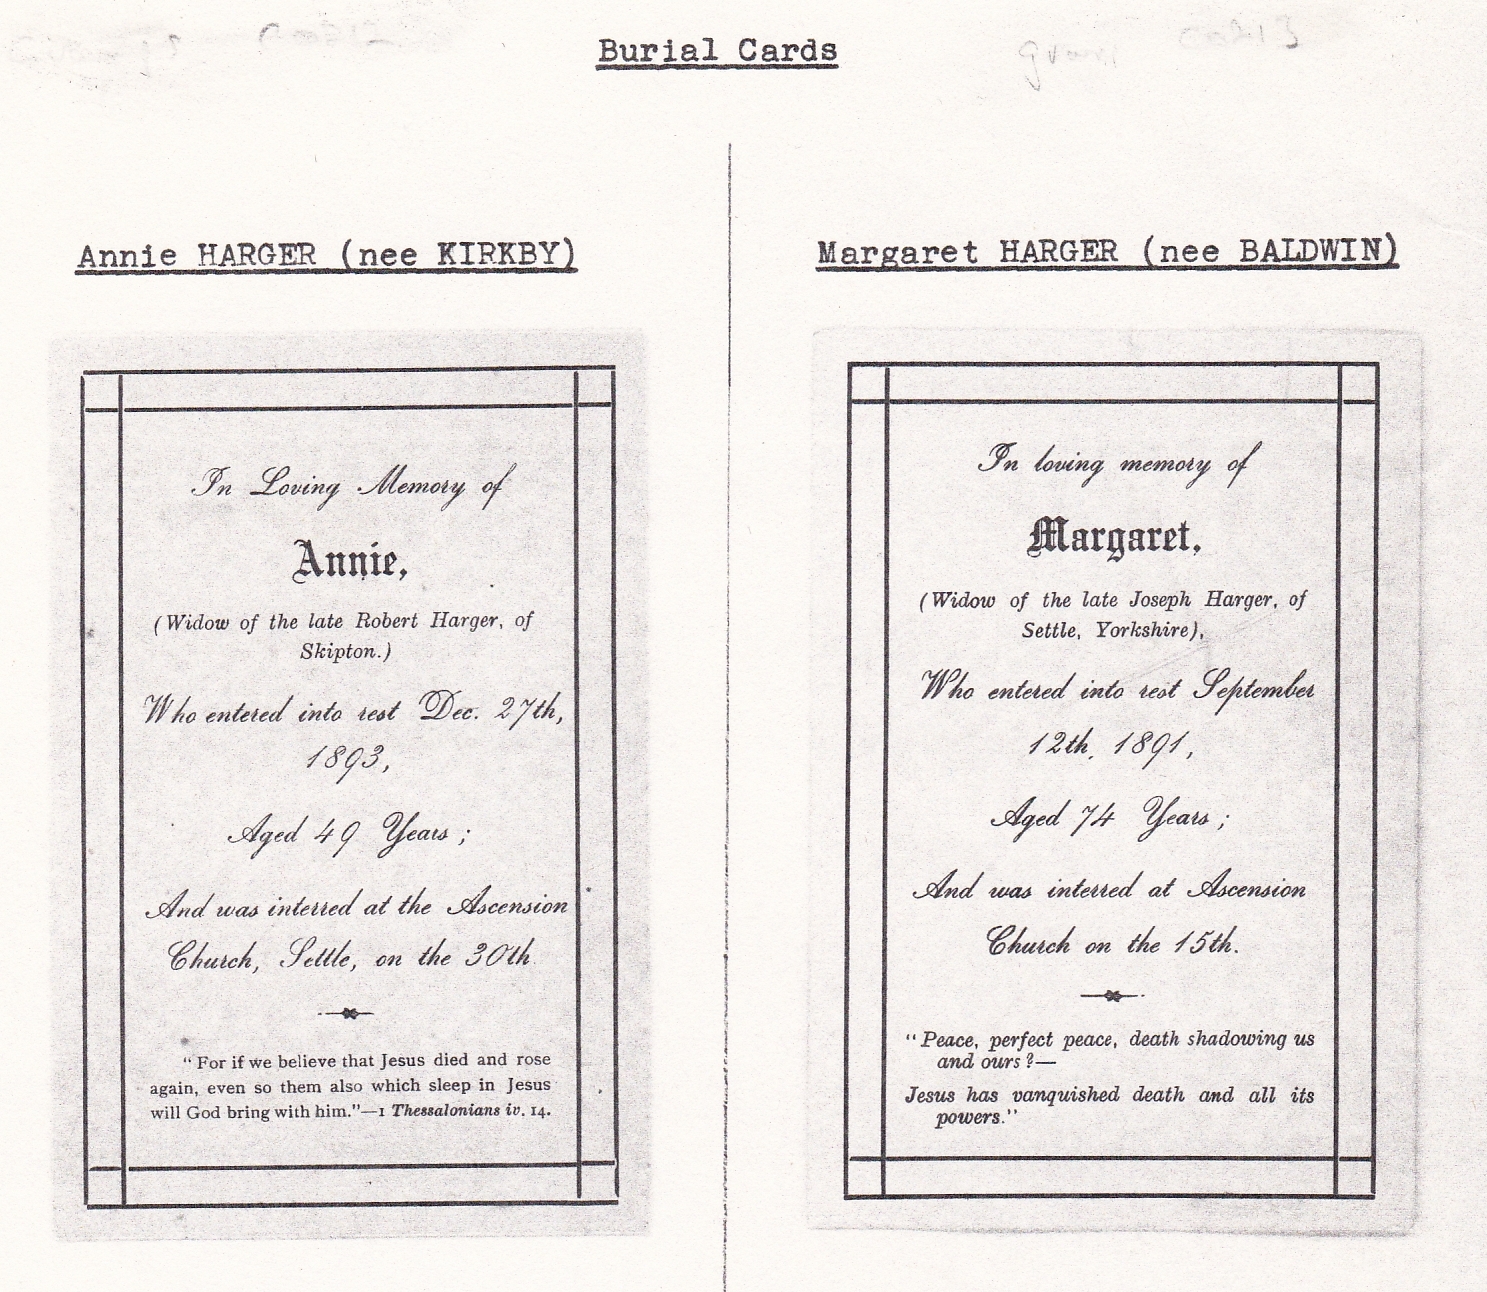 Burial Cards
Annie HARGER (nee KIRKBY)
In Loving Memory of
Annie,
(Widow of the late Robert Harger, of
Skipton.)
Who entered into rest Dec. 27th,
1893,
Aged 49 Years;
And was interred at the Ascension
Church, Settle, on the 30th
“For if we believe that Jesus died and rose
again, even so them also which sleep in Jesus
will God bring with him.”—1 Thessalonians iv. 14.
Margaret HARGER (nee BALDWIN)
In loving memory of
Margaret,
(Widow of the late Joseph Harger, of
Settle, Yorkshire),
Who entered into rest September
12th, 1891,
Aged 74 Years;
And was interred at Ascension
Church on the 15th.
“Peace, perfect peace, death shadowing us
and ours?—
Jesus has vanquished death and all its
powers.”